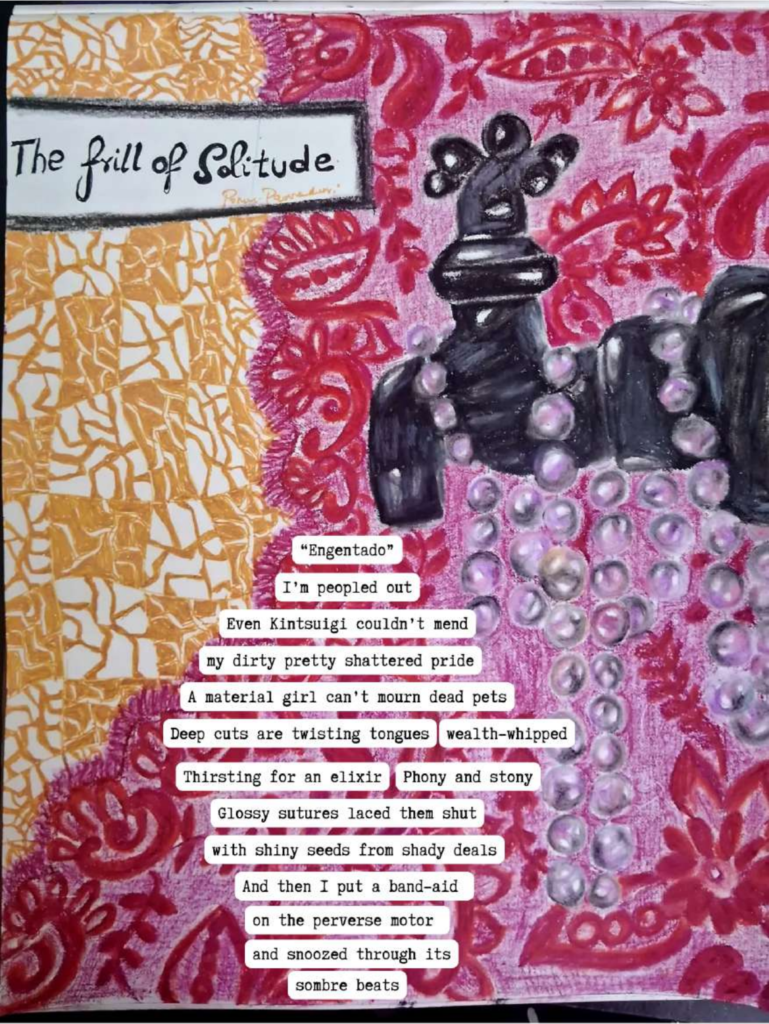 The frill of Solitude
“Engentado”
I’m peopled out
Even Kintsuigi couldn’t mend
my dirty pretty shattered pride
A material girl can’t mourn dead pets
Deep cuts are twisting tongues wealth-whipped
Thirsting for an elixir Phony and stony
Glossy sutures laced them shut
with shiny seeds from shady deals
And then I put a band-aid
on the perverse motor
and snoozed through its
sombre beats